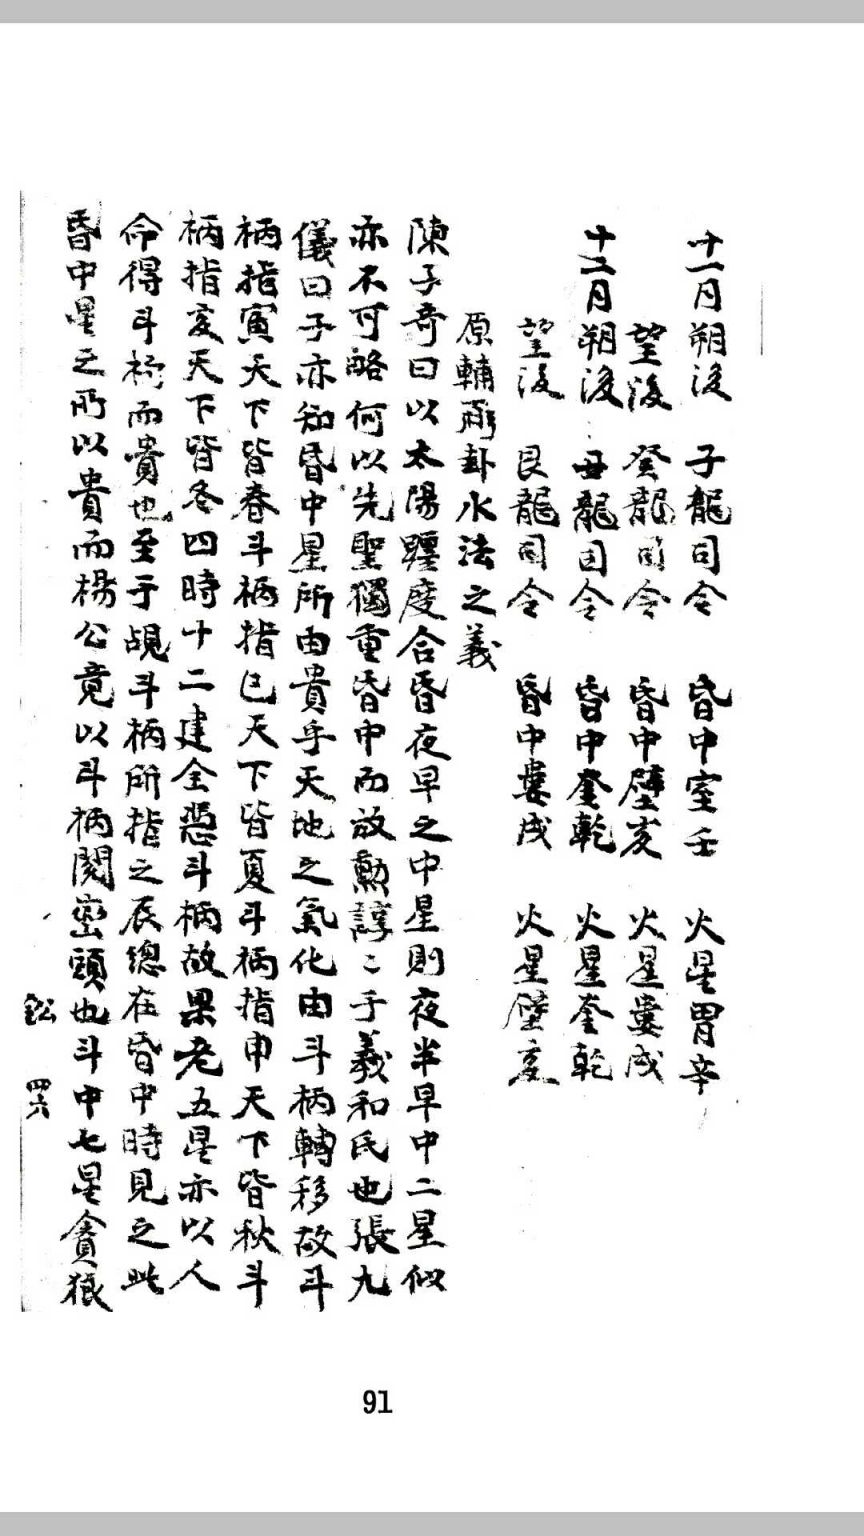 十一月朔後　子龍司令　昏中室壬　火星胃辛
望後　癸龍司令　昏中壁亥　火星婁戌
十二月朔後　丑龍司令　昏中奎乾　火星奎乾
望後　艮龍司令　昏中婁戌　火星壁亥
原輔弼卦水法之義
陳子奇曰以太陽躔度合昏夜早之中星則夜半早中二星似
亦不可略何以先聖獨重昏中而放勳諄〻于義和氏也張九
儀曰子亦知昏中星所由貴乎天地之氣化由斗柄轉移故斗
柄指寅天下皆春斗柄指巳天下皆夏斗柄指申天下皆秋斗
柄指亥天下皆冬四時十二建全憑斗柄故果老五星亦以人
命得斗柄而貴也至于覘斗柄所指之辰總在昏中時見之此
昏中星之所以貴而楊公竟以斗柄閱巒頭也斗中七星貪狼
四六
91